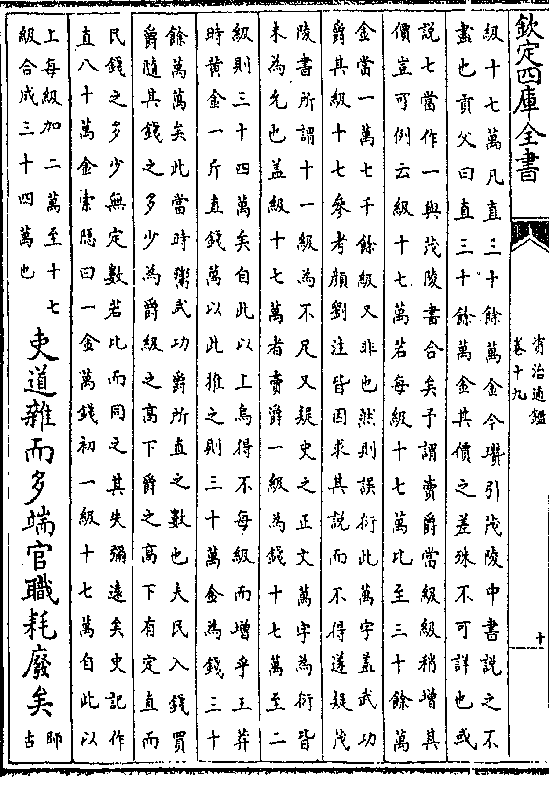 欽定四庫全書
資治通鑑
卷十九
十
級十七萬凡直三十餘萬金今瓚引茂陵中書說之不
盡也貢父曰直三十餘萬金其價之差殊不可詳也或
說七當作一與茂陵書合矣予謂賣爵當級級稍增其
價豈可例云級十七萬若每級十七萬比至三十餘萬
金當一萬七千餘級又非也然則誤衍此萬字蓋武功
爵其級十七參考顔劉注皆因求其說而不得遂疑茂
陵書所謂十一級為不足又疑史之正文萬字為衍皆
未為允也蓋級十七萬者賣爵一級為錢十七萬至二
級則三十四萬矣自此以上烏得不每級而增乎王莽
時黄金一斤直錢萬以此推之則三十萬金為錢三十
餘萬萬矣此當時鬻武功爵所直之數也夫民入錢買
爵隨其錢之多少為爵級之高下爵之高下有定直而
民錢之多少無定數若比而同之其失彌遠矣史記作
直八十萬金索隱曰一金萬錢初一級十七萬自此以
上每級加二萬至十七
級合成三十四萬也
吏道雜而多端官職耗廢矣
師
古